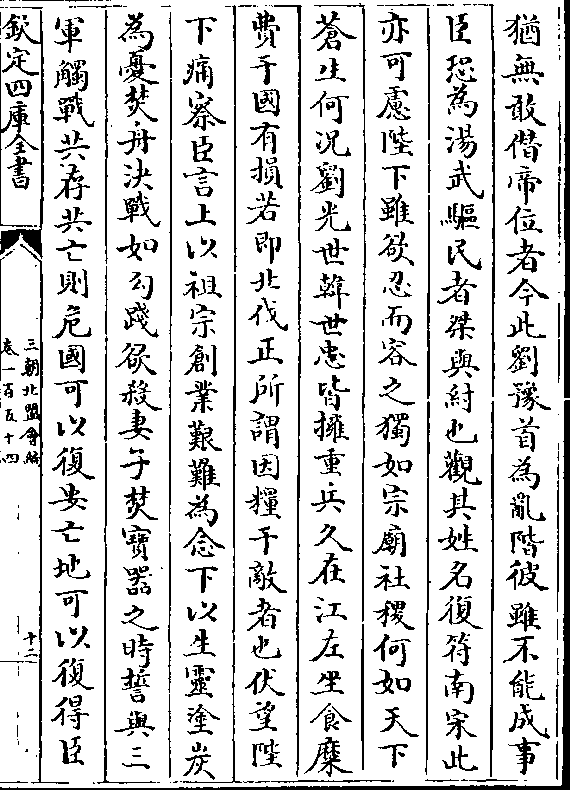 猶無敢僭帝位者今此劉豫首為亂階彼雖不能成事
臣恐為湯武驅民者桀與紂也觀其姓名復符南宋此
亦可慮陛下雖欲忍而容之獨如宗廟社稷何如天下
蒼生何况劉光世韓世忠皆擁重兵久在江左坐食糜
費于國有損若即北伐正所謂因糧于敵者也伏望陛
下痛察臣言上以祖宗創業艱難為念下以生靈塗炭
為憂焚舟決戰如勾踐欲殺妻子焚寶器之時誓與三
軍觸戰共存共亡則危國可以復安亡地可以復得臣
欽定四庫全書
三朝北盟會編
卷一百五十四
十二